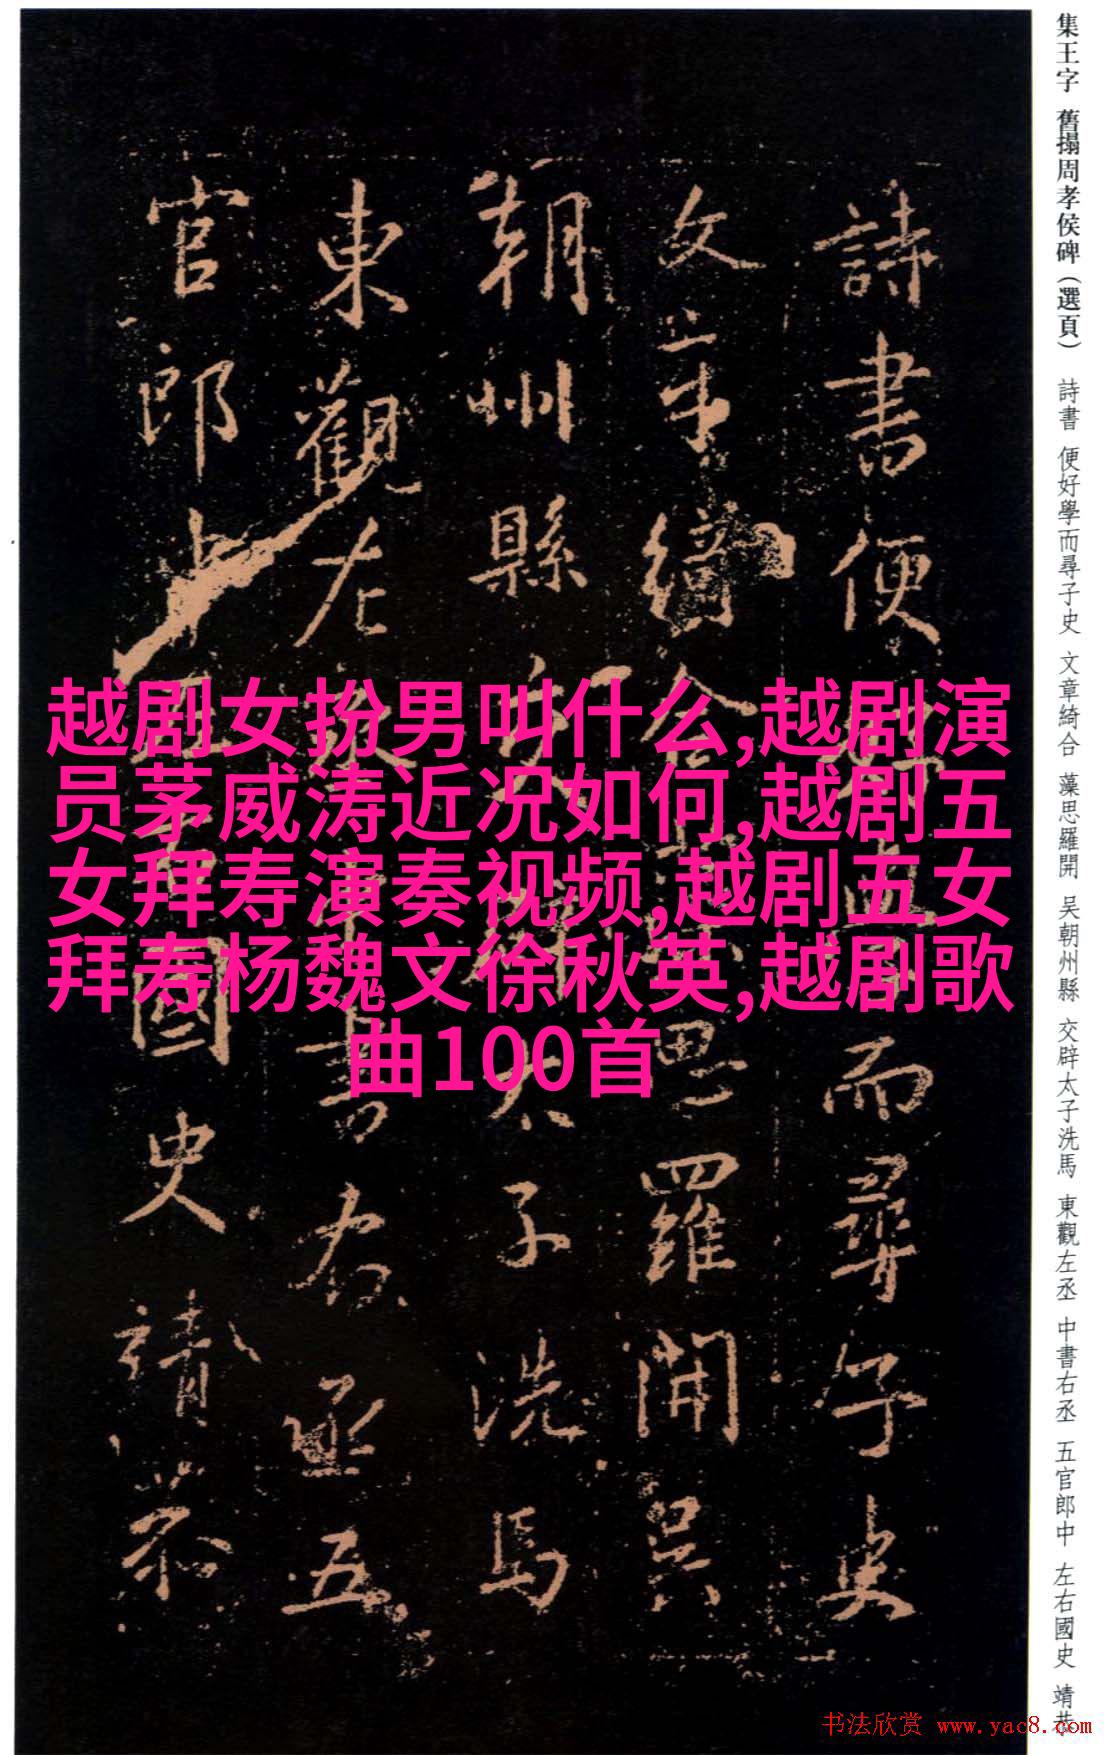 集王字 舊搨周孝侯碑（選頁） 詩書 便好學而尋子史 文章綺合 藻思羅開 吴朝州縣 交辟太子洗馬 東觀左丞 中書右丞 五官郎中 左右國史 靖恭
詩書便好學而尋子史
文章綺合藻思羅開吴
朝州縣交辟太子洗馬
東觀左丞中書右丞五
官郎中左右國史靖恭
越剧女扮男叫什么,越剧演
员茅威涛近况如何,越剧五
女拜寿演奏视频,越剧五女
拜寿杨魏文徐秋英,越剧歌
曲100首
书法欣赏 www.yac8.com